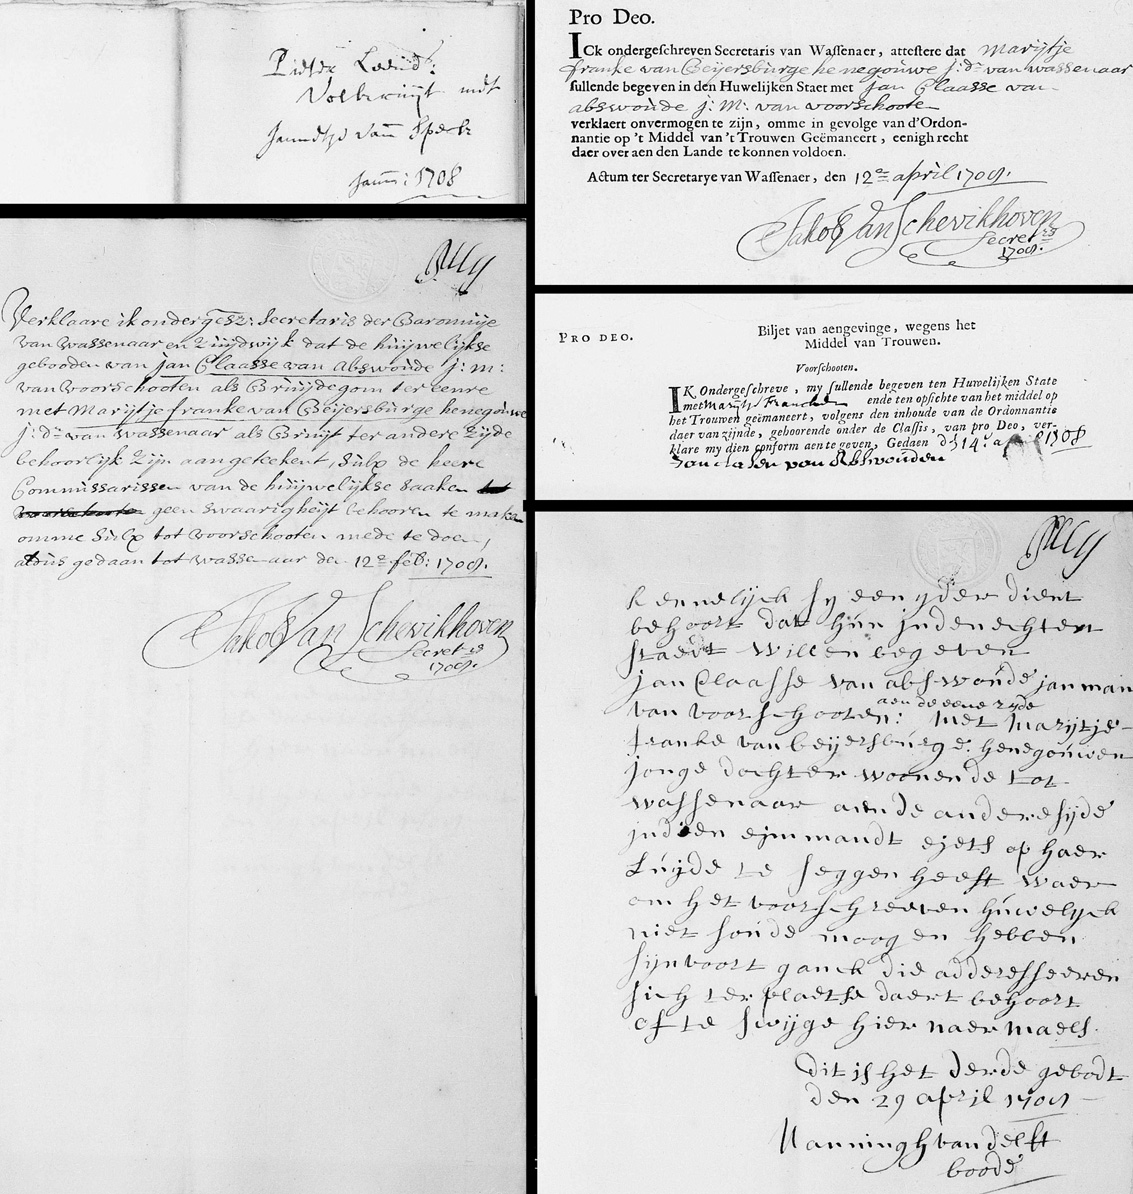 Pieter Leend:
Volbregt met
Jannetye van Speck
Jann: 1708
Verklaare ik ondergesz: Secretaris der Baronnije
van Wassenaar en Zuijdwijk dat de huijwelijkse
gebooden van Jan Claasse van Abswoude j: m:
van Voorschooten als Bruijdegom ter eenre
met Marijtje franke van Beijersburge henegouwe
j: dr van wassenaar als Bruijt ter andere Zijde
behoorlijk Zijn aangeteekent, Sulx de heere
Commissarissen van de huijwelijkse Saaken
geen swaarigheijt behooren te maken
omme Sulx tot Voorschooten mede te doen,
aldus gedaan tot wassenaar den 12e feb: 1708.
Jakob Van Schevikhoven
Secrets
1708.
Pro Deo.
ICk ondergeschreven Secretaris van Wassenaer, attestere dat Marijtje
franke van Beijersburge henegouwe j: dr van wassenaar
sullende begeven in den Huwelijken Staet met Jan Claasse van
abswoude j: M: van voorschoote
verklaert onvermogen te zijn, omme in gevolge van d'Ordon-
nantie op 't Middel van 't Trouwen Geëmaneert, eenigh recht
daer over aen den Lande te konnen voldoen.
Actum ter Secretarye van Wassenaer, den 12e april 1708.
Jakob Van Schevikhoven
Secrets
1708.
PRO DEO.
Biljet van aengevinge, wegens het
Middel van Trouwen.
Voorschooten.
IK Ondergeschreve, my sullende begeven ten Huwelijken State
met Marijtje Francken ende ten opsichte van het middel op
het Trouwen geëmaneert, volgens den inhoude van de Ordonnantie
daer van zijnde, gehoorende onder de Classis, van pro Deo, ver-
klare my dien conform aen te geven, Gedaen den 14: a 1708
Jan clasen van Abswouden
kennelijck sy een yder dient
behoort dat hun in den echten
staedt willen begeven
jan Claasse van abswoude jan man
van voorschooten: aen de eene zyde met Marijtje
franke van beijersburge: henegouwen
jonge dochter woonende tot
wassenaar aen de andere sijde
indien eijmmandt ejets op haer
Luijde te seggen heeft waer
om het voorschreeven huwelijck
niet soude moogen hebben
sijn voort ganck die adderesseeren
sich ter plaetse daert behoort
of te swijge hier naermaels.
Dit is het derde gebodt
den 29 april 1708
Nanningh van delft
boode